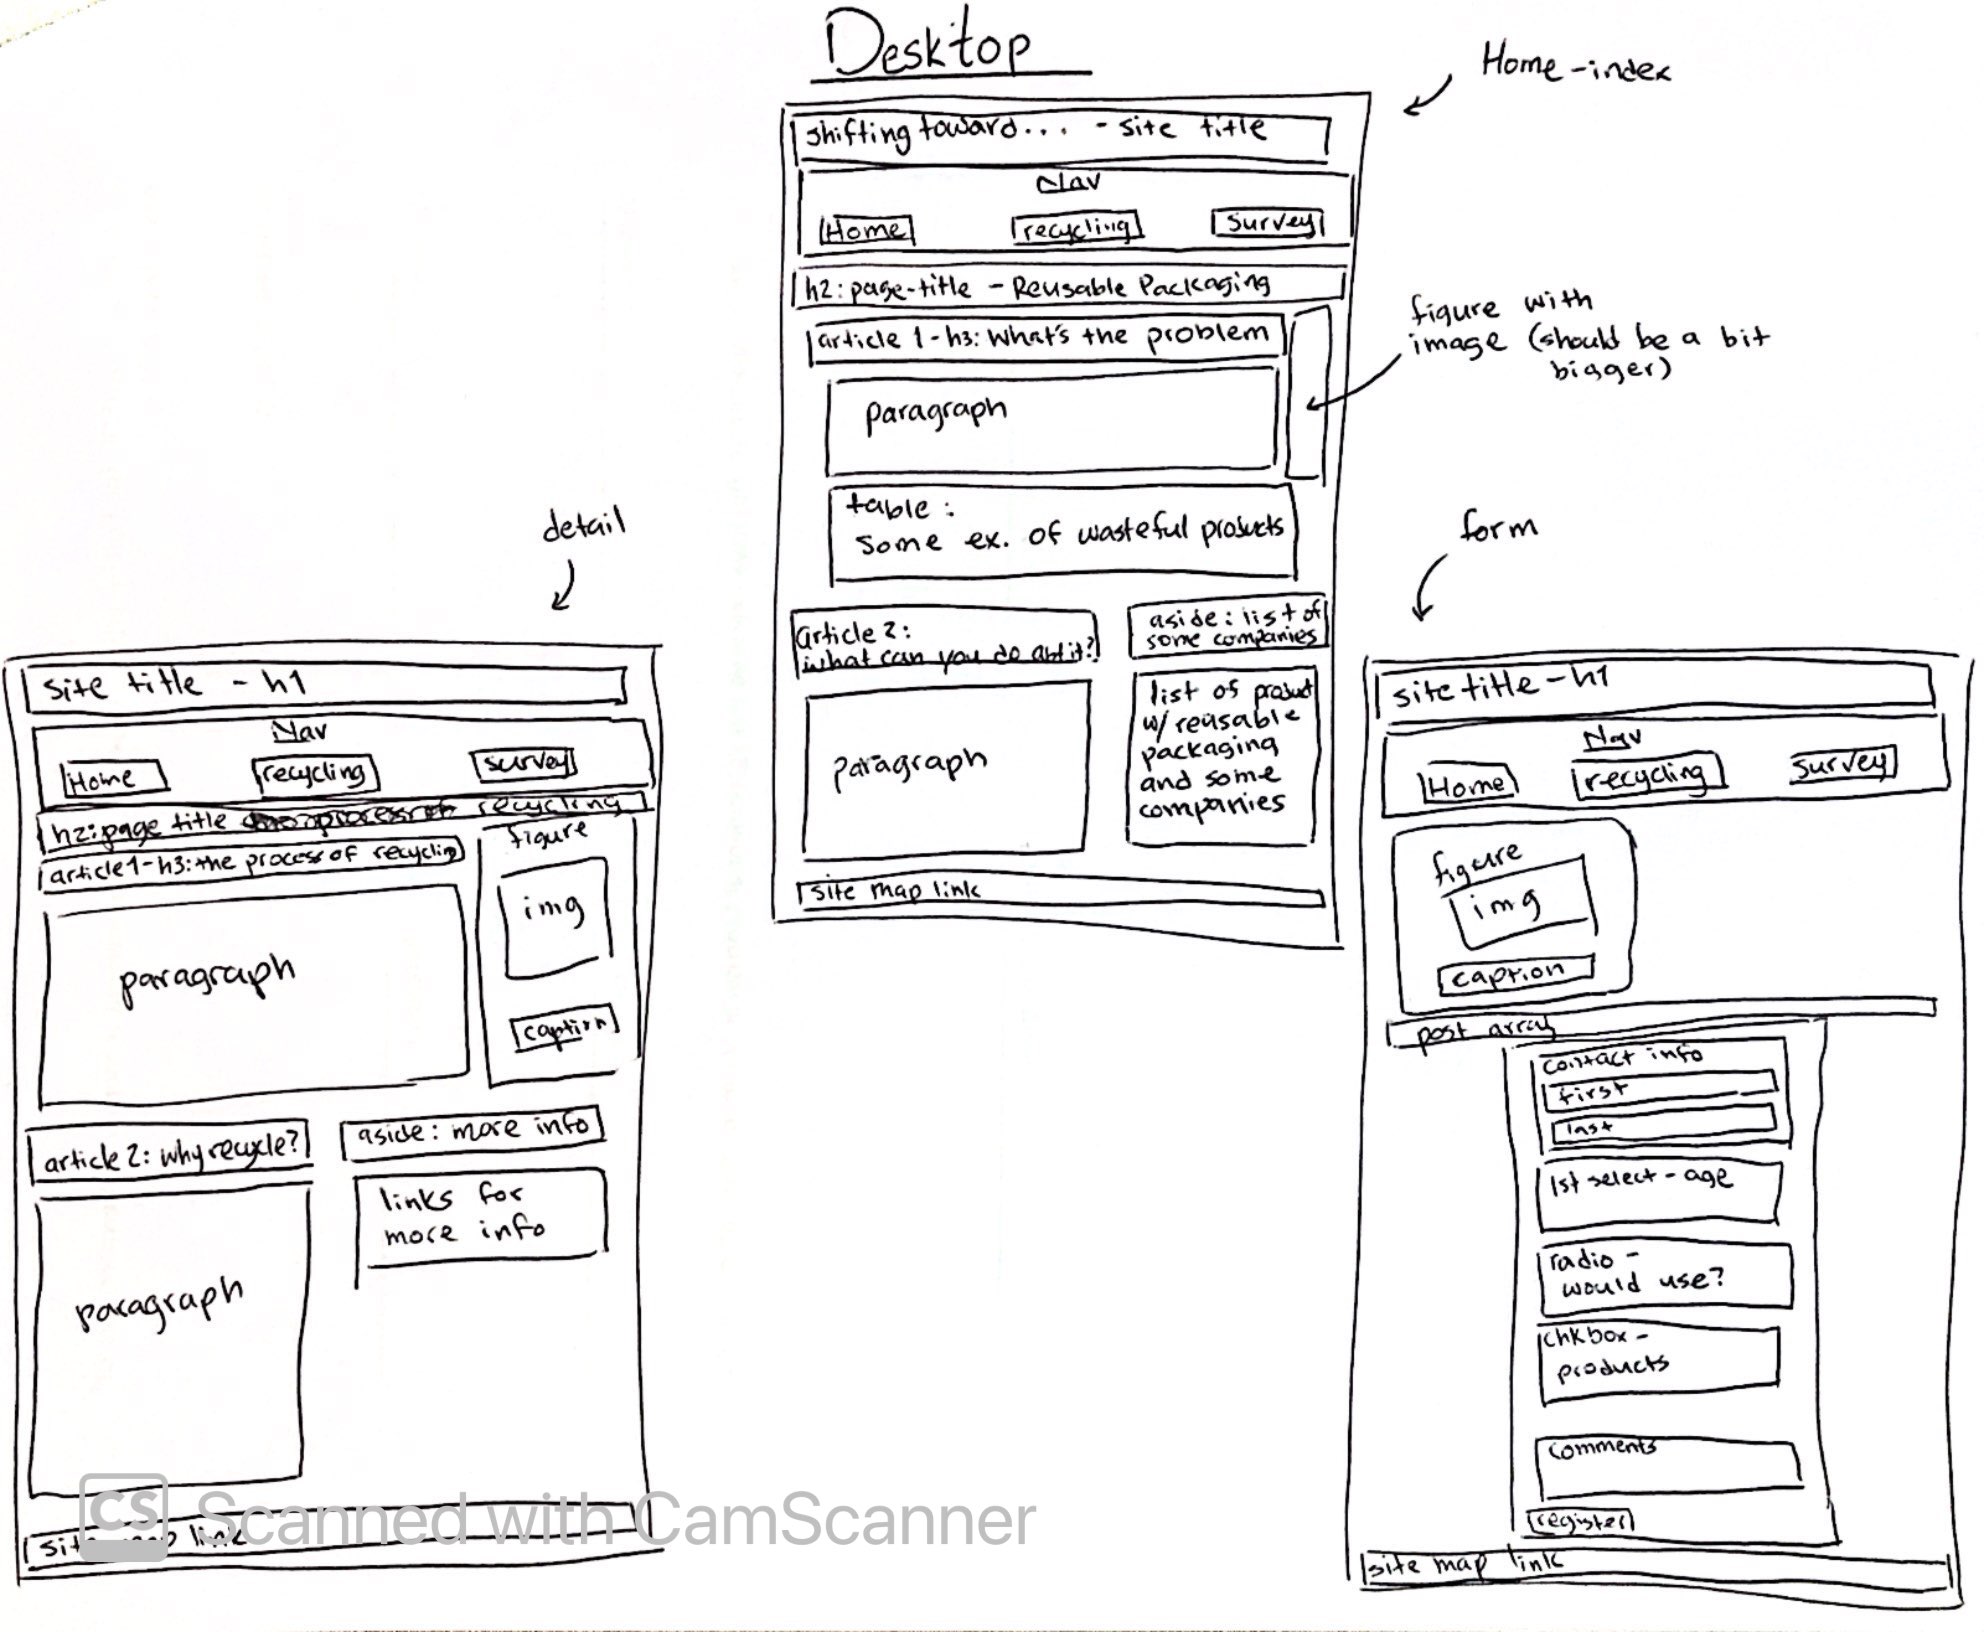 Desktop
Home-index
shifting toward... - site title
Nav
Home recycling survey
h2: page-title - Reusable Packaging
article 1-h3: What's the problem
figure with
image (should be a bit
bigger)
paragraph
table:
some ex. of wasteful products
article 2:
what can you do abt it?
aside: list of
some companies
paragraph
list of product
w/ reusable
packaging
and some
companies
site map link
detail
site title - h1
Nav
Home recycling survey
h2: page title recycling
article 1-h3: the process of recycling
figure
img
caption
paragraph
article 2: why recycle?
aside: more info
links for
more info
paragraph
site map link
form
site title - h1
Nav
Home recycling survey
figure
img
caption
post array
contact info
first
last
1st select - age
radio -
would use?
chkbox -
products
comments
register
site map link
CS Scanned with CamScanner